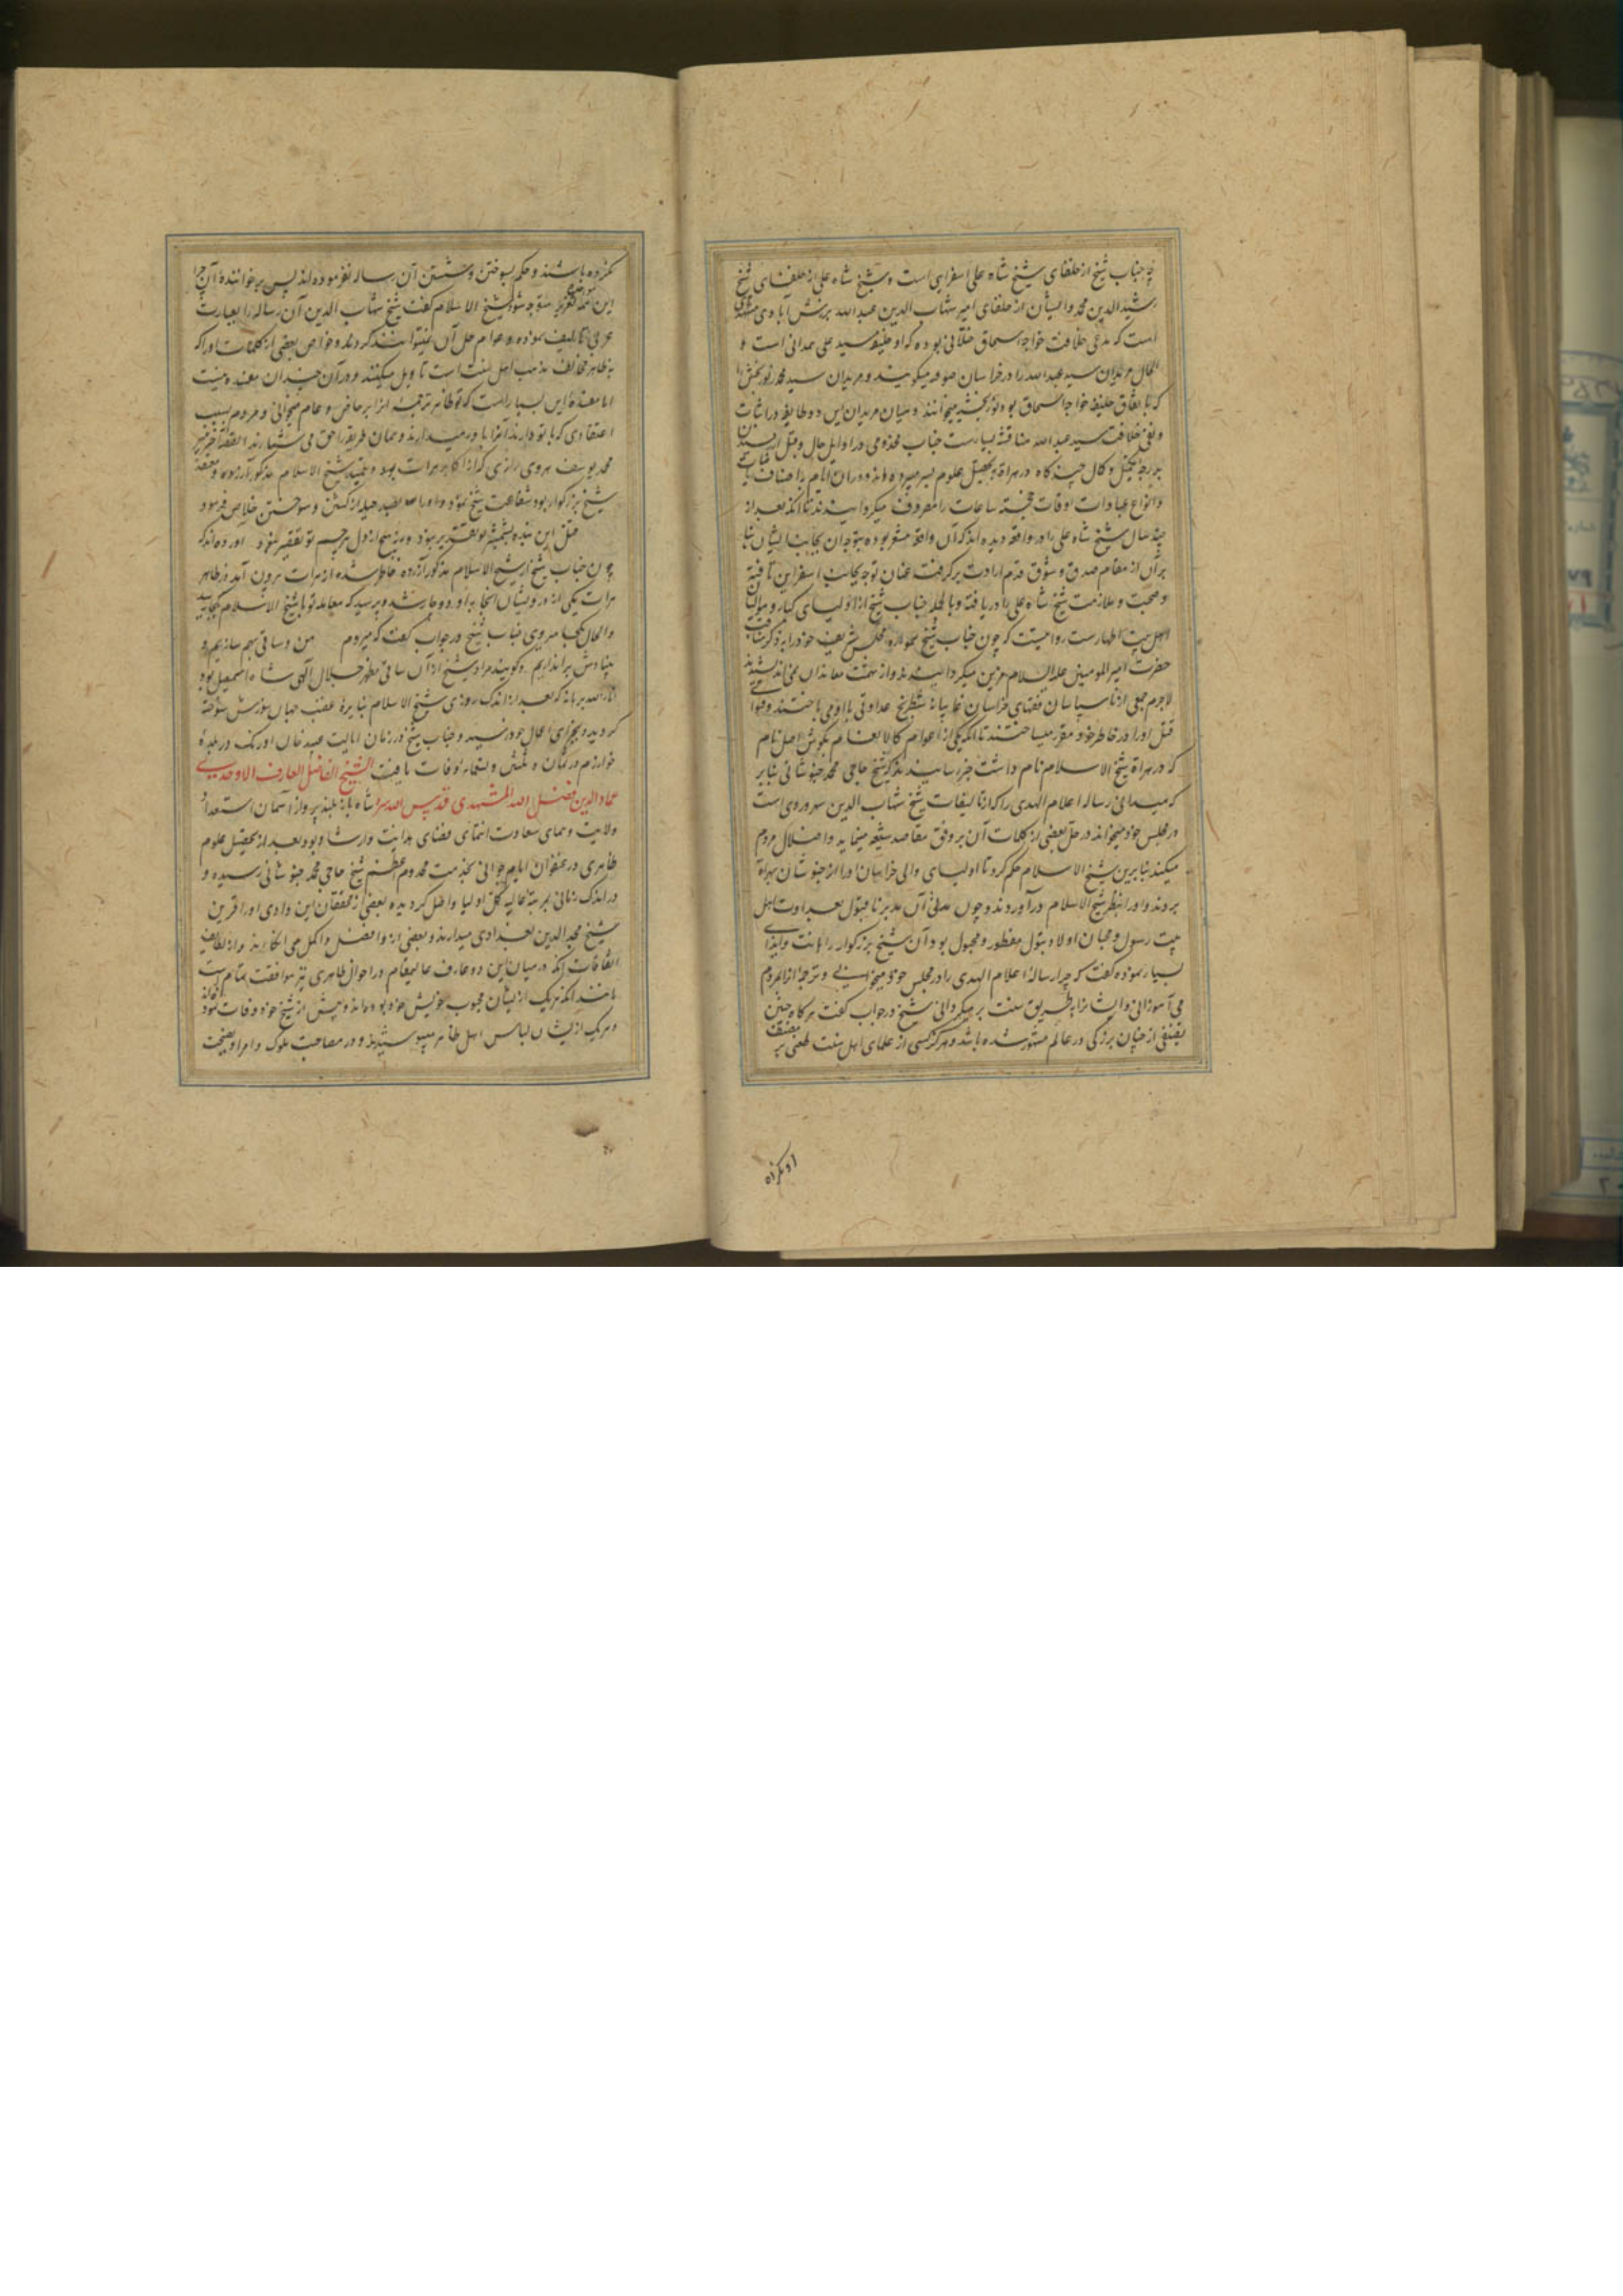 چه جناب شیخ از خلفای شیخ شاه علی اسفراینی است و شیخ شاه علی از خلفای شیخ
رشید الدین محمد و ایشان از خلفای امیر شهاب الدین عبد الله برزش آبادی مشهدی
است که مدعی خلافت خواجه اسحاق ختلانی بوده که او خلیفه سید علی همدانی است
الحال مریدان سید عبد الله را در خراسان صوفیه میگویند و مریدان سید محمد نوربخش را
که باتفاق خلیفه خواجه اسحاق بود نوربخشیه میخوانند و میان مریدان این دو طایفه در اثبات
و نفی خلافت سید عبد الله مناقشه بسیارست جناب مخدومی در اوایل حال و قبل از رسیدن
بدرجه تکمیل و کمال چند گاه در هراة بتحصیل علوم بسر میبرده اند و در ان ایام باصناف طاعات
و انواع عبادات اوقات خجسته ساعات را مصروف میگردانیدند تا آنکه بعد از
چند سال شیخ شاه علی را در واقعه دیده اند که آن واقعه مشعر بوده بتوجه ان بجانب ایشان بنا
بر آن از مقام صدق و شوق قدم ارادت برگرفته عنان توجه بجانب اسفراین تافته
و صحبت و ملازمت شیخ شاه علی را دریافته و بالجمله جناب شیخ از اولیای کبار و موالیان
اهل بیت اطهارست روایتست که چون جناب شیخ همواره مجلس شریف خود را بذکر مناقب
حضرت امیر المومنین علیه السلام مزین میگردانیدند و از تهمت معاندان نمی اندیشیدند
لاجرم جمعی از ناسپاسان فقهای خراسان غایبانه شطرنج عداوتی با او می باختند و فتوای
قتل او را در خاطر خود مقرر میساختند تا آنکه یکی از عوام کالانعام بگوش اصل نام
که در هراة شیخ الاسلام نام داشت خبر رسانیدند که شیخ حاجی محمد خبوشانی بنابر
که میدانی رساله اعلام الهدی را که از تالیفات شیخ شهاب الدین سهروردی است
در مجلس خود میخواند و در حل بعضی از کلمات آن بر وفق مقاصد شیعه مینماید و اضلال مردم
میکند بنابرین شیخ الاسلام حکم کرد تا اولیای والی خراسان او را از خبوشان بهراة
بردند و او را بنظر شیخ الاسلام درآوردند و چون آن مدبر نامقبول بعداوت اهل
بیت رسول و محبان اولاد بتول مفطور و مجبول بود آن شیخ بزرگوار را اهانت و ایذای
بسیار نموده گفت که چرا رساله اعلام الهدی را در مجلس خود میخوانی و ترجمه انرا بمردم
می آموزانی و ایشانرا از طریق سنت برمیگردانی شیخ در جواب گفت هر گاه چنین
تصنیفی از چنان بزرگی در عالم مشهور شده باشد و هرگز کسی از علمای اهل سنت طعنی بر مصنف
او نکرده
نکرده باشند و حکم بسوختن و شستن آن رساله نفرموده اند پس بر خواننده آن چرا
این همه تعرض متوجه شود شیخ الاسلام گفت شیخ شهاب الدین آن رساله را بعبارت
عربی تالیف نموده و عوام حل آن نمیتوانند کرد و خواص بعضی از کلمات او را که
بظاهر مخالف مذهب اهل سنت است تاویل میکنند و در آن چندان مفسده نیست
اما مفسده این بسیار است که تو ظاهر ترجمه انرا بر خاص و عام میخوانی و مردم بسبب
اعتقادی که با تو دارند آنرا باور میدارند و همان طریق را حق می شمارند القصه آخر میر
محمد یوسف هروی رازی که از اکابر هرات بود و بتقیه شیخ الاسلام مذکور ازرده و معتقد
شیخ بزرگوار بود شفاعت شیخ نمود و او را بصد حیله از کشتن و سوختن خلاص فرمود
قتل این بنده بشمشیر تو تقدیر نبود ورنه هیچ از دل بیرحم تو تقصیر نبود آورده اند که
چون جناب شیخ از شیخ الاسلام مذکور آزرده خاطر شده از هرات بیرون آمد در ظاهر
هرات یکی از درویشان انجا به او دوچار شد و پرسید که معامله تو با شیخ الاسلام بکجا رسید
و الحال بکجا میروی جناب شیخ در جواب گفت که میروم من و ساقی بهم سازیم و
بنیادش براندازیم و گویند مراد شیخ از آن ساقی مظهر جلال الهی شاه اسمعیل بود
انار الله برهانه که بعد از اندک روزی شیخ الاسلام بنایره غضب جهان سوزش سوخته
گردید و بجزای اعمال خود رسید و جناب شیخ در زمان ایالت عبید خان اوزبک در بلده
خوارزم در ثمان و ثلثین و تسعمایه وفات یافت الشیخ الفاضل العارف الاوحدی
عماد الدین فضل الله المشهدی قدس الله سره شاه باز بلند پرواز آسمان استعداد
ولایت و همای سعادت انتمای فضای هدایت و ارشاد بود بعد از تحصیل علوم
ظاهری در عنفوان ایام جوانی بخدمت مخدوم اعظم شیخ حاجی محمد خبوشانی رسیده و
در اندک زمانی بمرتبه عالیه کمل اولیا واصل گردیده بعضی از محققان این وادی او را قرین
شیخ مجد الدین بغدادی میدارند و بعضی از او افضل و اکمل می انگارند و از لطایف
اتفاقات آنکه در میان این دو عارف عالیمقام در احوال ظاهری نیز موافقت تمام است
مانند آنکه هر یک از ایشان محبوب خویش خود بوده اند و پیش از شیخ خود وفات نموده اند
و هر یک از ایشان لباس اهل ظاهر میپوشیدند و در مصاحبت ملوک و امرا و نصیحت